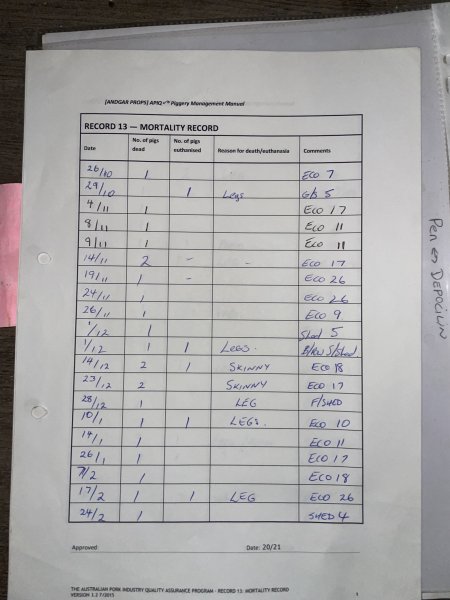 [ANDGAR PROPS] APIQ✓™ Piggery Management Manual
RECORD 13 — MORTALITY RECORD
Date No. of pigs dead No. of pigs euthanised Reason for death/euthanasia Comments
26/10 1 ECO 7
29/10 1 Legs G/S 5
4/11 1 ECO 17
8/11 1 ECO 11
9/11 1 ECO 11
14/11 2 - - ECO 17
19/11 1 - ECO 26
24/11 1 ECO 26
26/11 1 ECO 9
1/12 1 Shed 5
1/12 1 1 LEGS.
14/12 2 1 SKINNY ECO 18
23/12 2 SKINNY ECO 17
28/12 1 LEG F/SHED
10/1 1 1 LEGS. ECO 10
14/1 1 ECO 11
26/1 1 ECO 17
7/2 1 ECO 18
17/2 1 1 LEG ECO 26
24/2 1 SHED 4
Approved: Date: 20/21
THE AUSTRALIAN PORK INDUSTRY QUALITY ASSURANCE PROGRAM - RECORD 13: MORTALITY RECORD
VERSION 1.2 7/2015 1
Pen